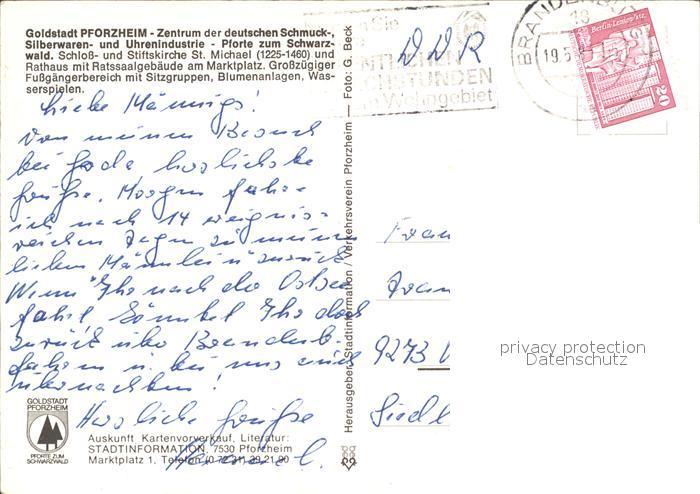 Goldstadt PFORZHEIM - Zentrum der deutschen Schmuck-,
Silberwaren- und Uhrenindustrie - Pforte zum Schwarz-
wald. Schloß- und Stiftskirche St. Michael (1225-1460) und
Rathaus mit Ratssaalgebäude am Marktplatz. Großzügiger
Fußgängerbereich mit Sitzgruppen, Blumenanlagen, Was-
serspielen.
Liebe Männigs!
Von meinem Besuch
bei herzlichste
Grüße. Morgen fahre
ich nach 14 ereignis-
reichen Tagen zu meinem
lieben Männlein zurück
Wenn Ihr nach der Ostsee
fahrt könntet Ihr doch
zurück über Brandenb.
fahren u. bei uns
übernachten!
Herzliche Grüße
GOLDSTADT
PFORZHEIM
PFORTE ZUM
SCHWARZWALD
Auskunft Kartenvorverkauf, Literatur:
STADTINFORMATION, 7530 Pforzheim
Marktplatz 1, Telefon (0 72 31) 39 21 90
Herausgeber: Stadtinformation / Verkehrsverein Pforzheim — Foto: G. Beck
DDR
STUNDEN
Wohngebiet
BRANDENBURG
19.5.
Berlin-Leninplatz
20
Frau
9273
Siedl
privacy protection
Datenschutz